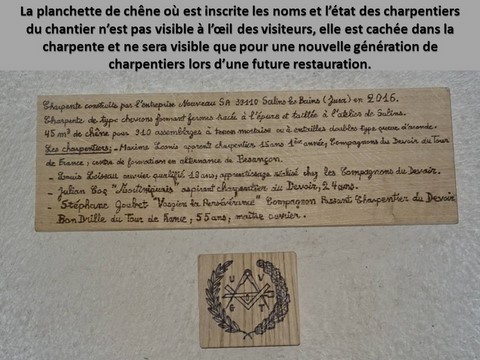 La planchette de chêne où est inscrite les noms et l’état des charpentiers
du chantier n’est pas visible à l’œil des visiteurs, elle est cachée dans la
charpente et ne sera visible que pour une nouvelle génération de
charpentiers lors d’une future restauration.
Charpente construite par l'entreprise Nouveau SA 39110 Salins les Bains (Jura) en 2016.
Charpente de type chevrons formant fermes tracé à l'épure et taillée à l'atelier de Salins.
45 m³ de chêne pour 310 assemblages à tenon mortaise ou à entrailles doubles type queue d'aronde.
Les charpentiers: - Maxime Lamie apprenti charpentier 16 ans 1ère année; Compagnons du Devoir du Tour
de France; centre de formation en alternance de Besançon.
- Louis Loiseau ouvrier qualifié 18 ans, apprentissage réalisé chez les Compagnons du Devoir.
- Julian Coq aspirant charpentier du Devoir, 24 ans.
- Stéphane Goubet "Vosgien la Persévérance" Compagnon Passant Charpentier du Devoir
Bon Drille du Tour de France, 55 ans, maître ouvrier.
U V
G T